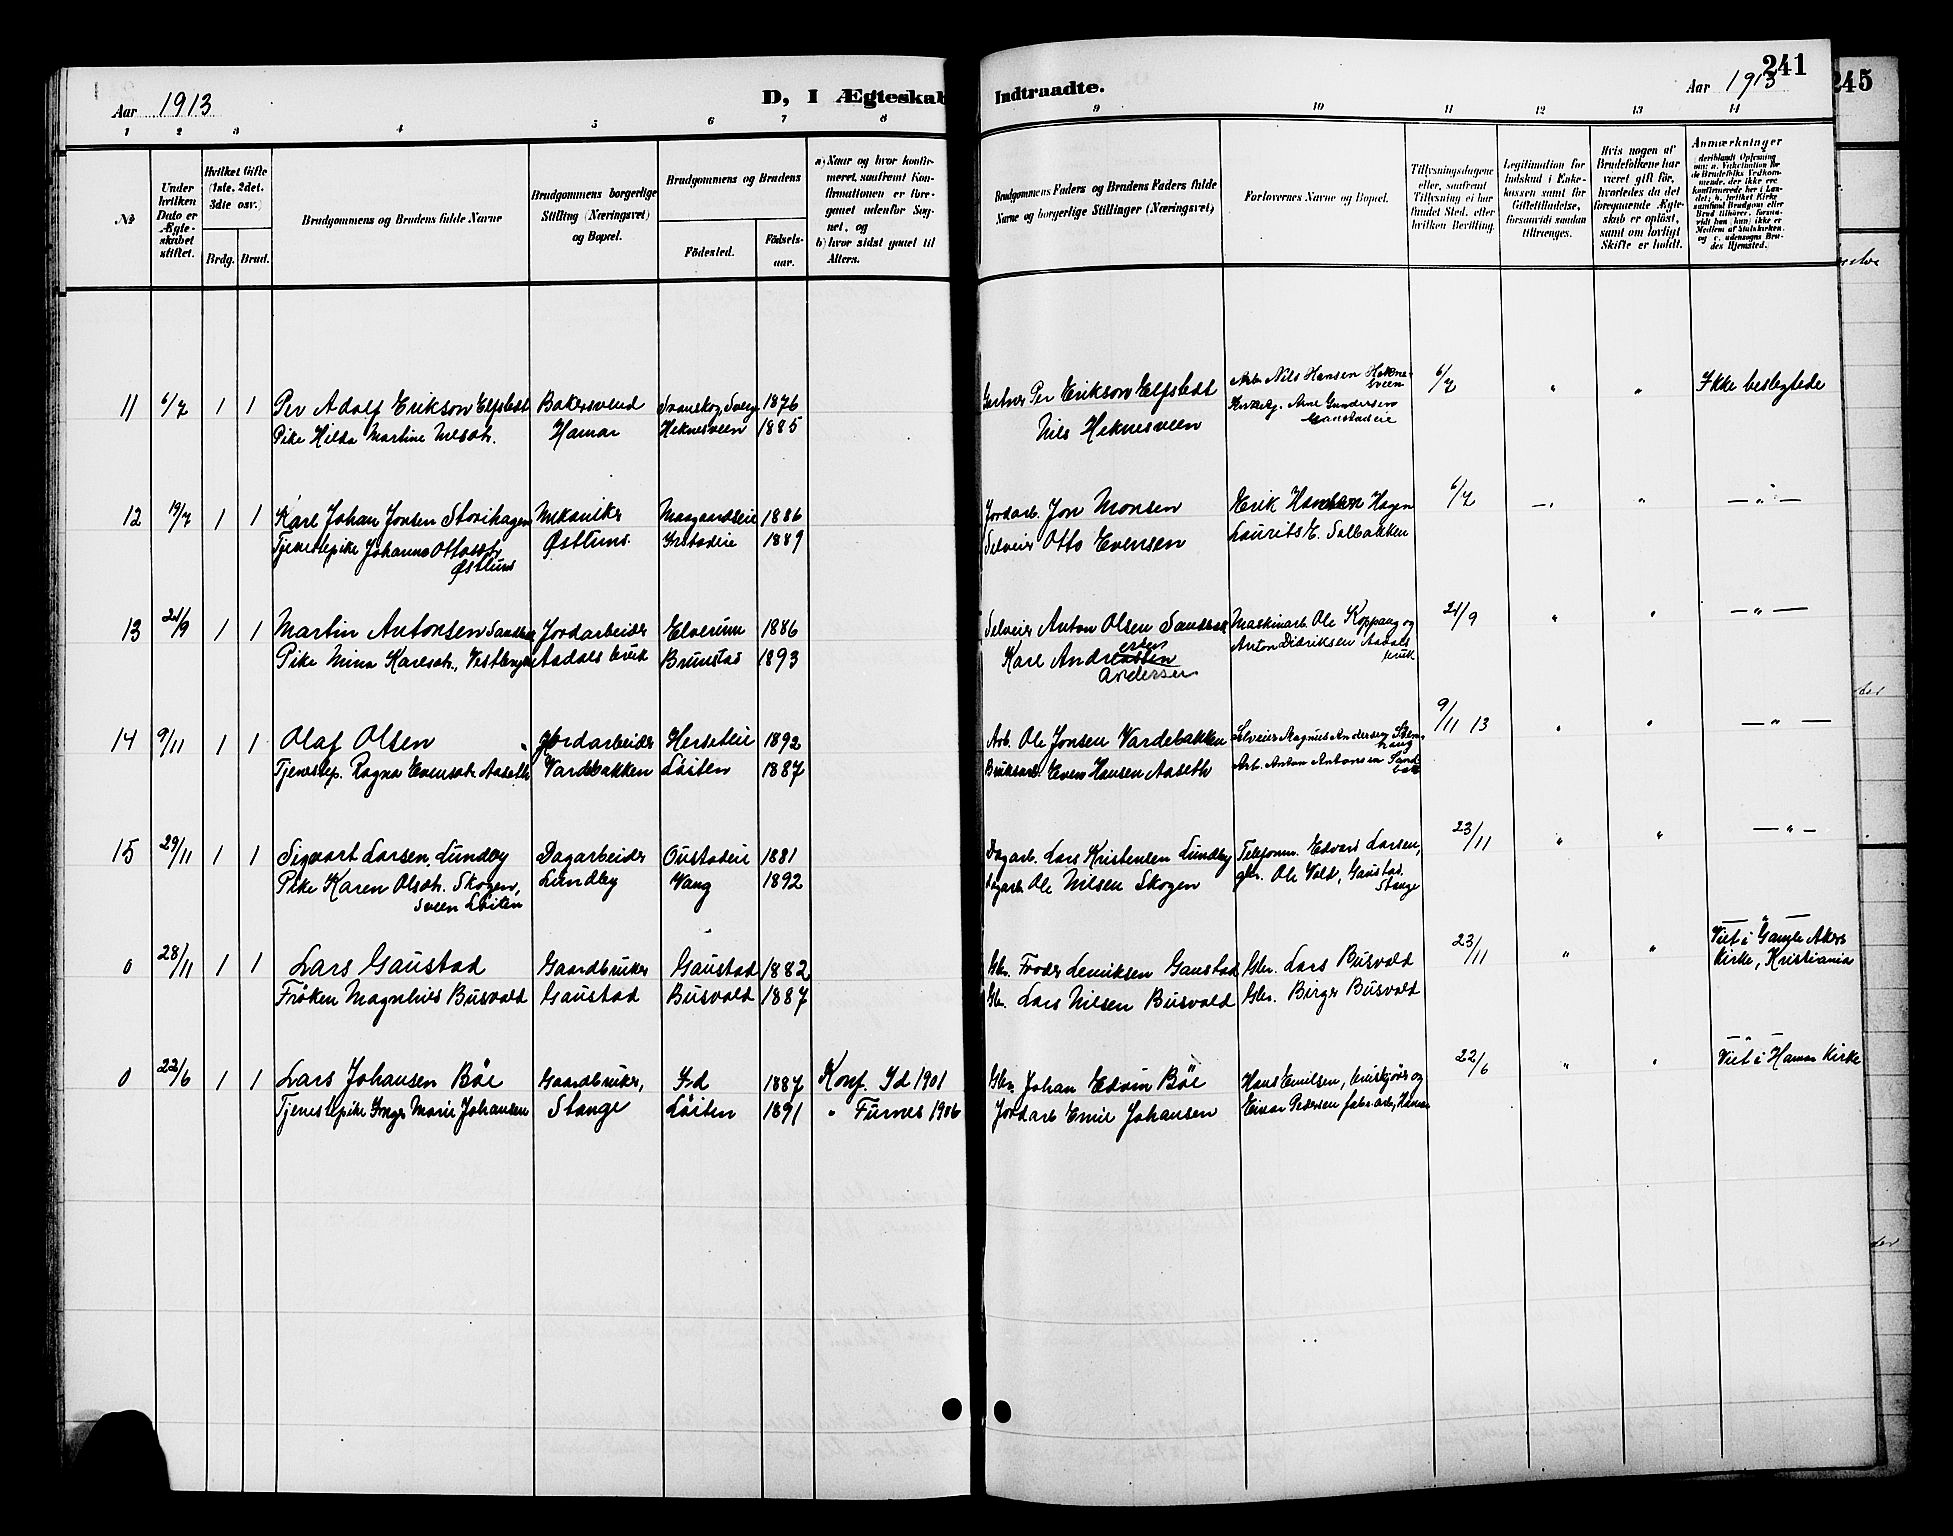 Aar 1913
D, I Ægteskab Indtraadte.
Aar 1913
241
245
1 2 3 4 5 6 7 8 9 10 11 12 13 14
№
Under hvilken Dato er Ægteskabet stiftet.
Hvilket Gifte (1ste. 2det. 3die osv.)
Brdg. Brud.
Brudgommens og Brudens fulde Navne
Brudgommens borgerlige Stilling (Næringsvei) og Bopæl.
Brudgommens og Brudens
Födested.
Födsels-aar.
a) Naar og hvor konfirmeret, saafremt Konfirmationen er foregaaet udenfor Sognet, og
b) hvor sidst gaaet til Alters.
Brudgommens Faders og Brudens Faders fulde Navne og borgerlige Stillinger (Næringsvei)
Forlovernes Navne og Bopæl.
Tillysningsdagene eller, saafremt Tillysning ei har fundet Sted, efter hvilken Bevilling.
Legitimation for Indskud i Enkekassen samt for Giftetilladelse, forsaavidt saadan tiltrænges.
Hvis nogen af Brudefolkene har været gift för, hvorledes da det foregaaende Ægteskab er oplöst, samt om lovligt Skifte er holdt.
Anmærkninger
11 6/7 1 1 Per Adolf Erikson Elfstedt Bakersvend Svanskog, Sverg 1876 Gartner Per Erikson Elfstedt Arb. Nils Hansen Heknesveen 6/7 " " Ikke beslegtede
Pike Hilda Martine Nilsdtr. Hamar Heknesveen 1885 Nils Heknesveen Kirketj. Arne Gundersen Gaustadeie
12 19/7 1 1 Karl Johan Jonsen Storihagen Mekaniker Maagaardseie 1886 Jordarb. Jon Monsen Erik Hansen Hagen 6/7 — " " — " —
Tjenestepike Johanne Ottosdtr. Østlund Østlund 1889 Selveier Otto Evensen Laurits E. Solbakken
13 21/9 1 1 Martin Antonsen Sandbak Jordarbeider Elverum 1886 Selveier Anton Olsen Sandbak Maskinarb. Ole Koppang og 21/9 " " — " —
Pike Mina Karlsdtr. Aadals bruk Brunstad 1893 Karl Andersen Anton Didriksen Aadals bruk
14 9/11 1 1 Olaf Olsen Jordarbeider Herseteie 1892 Arb. Ole Jonsen Vardebakken Selveier Magnus Andersen 9/11 13 " " — " —
Tjenestep. Ragna Evensdtr. Aaseth Vardebakken Löiten 1887 Bruksarb. Even Hansen Aaseth Arb. Anton Antonsen Sandbak
15 29/11 1 1 Sigvart Larsen Lundby Dagarbeider Oustadeie 1881 Dagarb. Lars Kristensen Lundby Telefonm. Edvard Larsen, 23/11 " " — " —
Pike Karen Olsdtr. Skogen, Sveen Löiten Lundby Vang 1892 Dagarb. Ole Nilsen Skogen gbr. Ole Vold, Gaustad, Stange
0 28/11 1 1 Lars Gaustad Gaardbruker Gaustad 1882 Gbr. Frode Lauritsen Gaustad Gbr. Lars Busvold 23/11 " " — " — Viet i Gamle Akers Kirke, Kristiania
Fröken Magnhild Busvold Gaustad Busvold 1887 Gbr. Lars Nilsen Busvold Gbr. Birger Busvold
0 22/6 1 1 Lars Johansen Böe Gaardbruker, 1887 Konf. Id 1901 Gbr. Johan Edvin Böe Hans Emilsen, bruskjörer og 22/6 " " — " — Viet i Hamar Kirke
Tjenestepike Inga Marie Johansen Stange Löiten 1891 " Furnes 1906 Jordarb Emil Johansen Einar Pedersen fabr.arb., Hamar